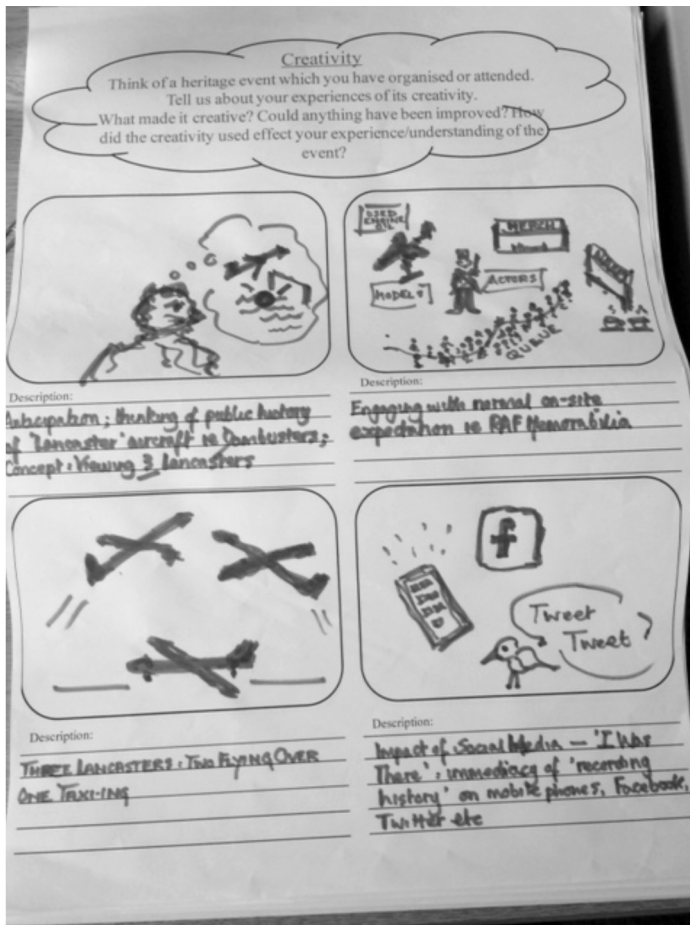 Creativity
Think of a heritage event which you have organised or attended.
Tell us about your experiences of its creativity.
What made it creative? Could anything have been improved? How
did the creativity used effect your experience/understanding of the
event?
USED
ENGINE
OIL
MODELS
ACTORS
MERCH
QUEUE
Description:
Anticipation; thinking of public history
of 'Lancaster' aircraft ie Dambusters;
Concept: Viewing 3 Lancasters
Description:
Engaging with normal on-site
expectation ie RAF Memorabilia
f
Tweet
Tweet
Description:
THREE LANCASTERS: TWO FLYING OVER
ONE TAXI-ING
Description:
Impact of Social Media — 'I Was
There': immediacy of 'recording
history' on mobile phones, Facebook,
Twitter etc